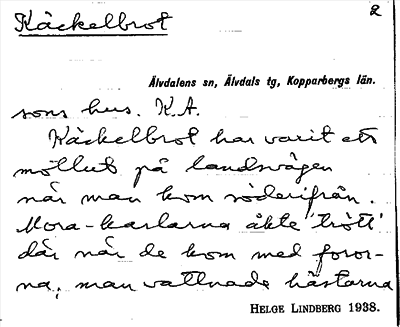 Käckelbrot 2
Älvdalens sn, Älvdals tg, Kopparbergs län.
sons hus. K.A.
Käckelbrot har varit ett
möllut på landsvägen
när man kom söderifrån.
Mora-karlarna åkte 'trött'
där när de kom med foror-
na, man vattnade hästarna
HELGE LINDBERG 1938.